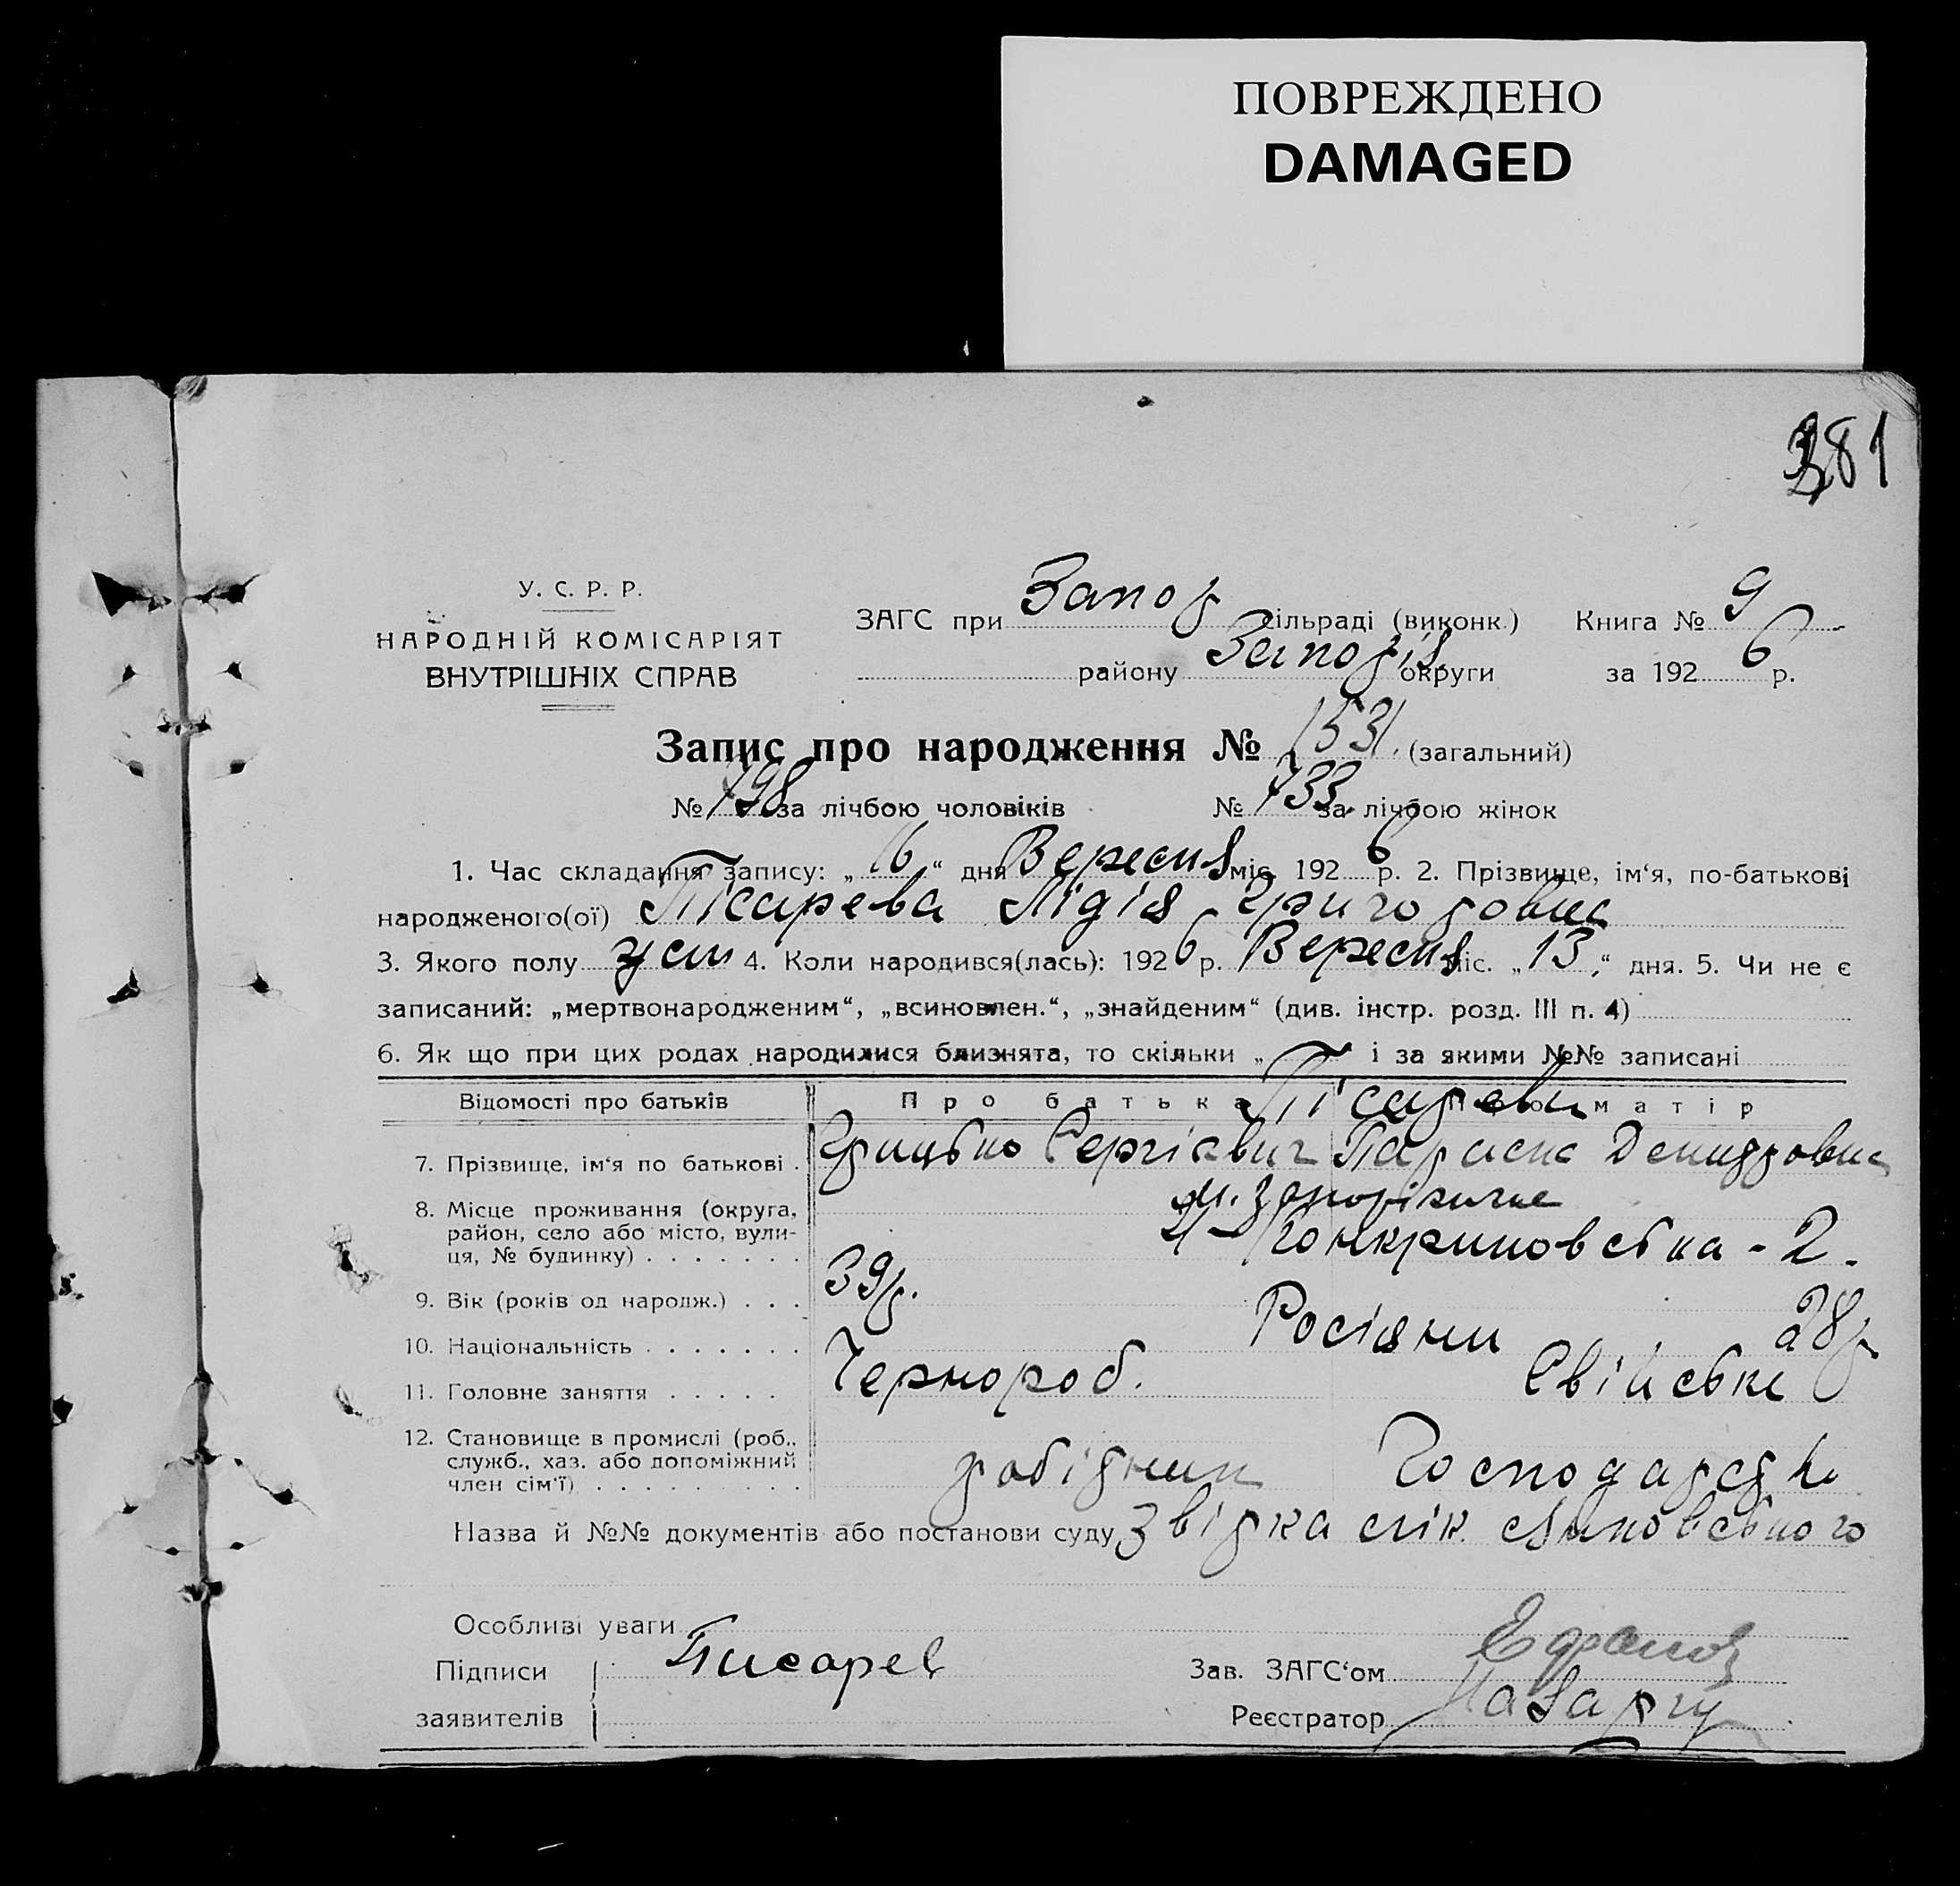 ПОВРЕЖДЕНО
DAMAGED
381
У. С. Р. Р.
НАРОДНІЙ КОМІСАРІЯТ
ВНУТРІШНІХ СПРАВ
ЗАГС при Запор сільраді (виконк.) Книга № 9
району Запоріз. округи за 1926 р.
Запис про народження № 1531. (загальний)
№ 798 за лічбою чоловіків № 733 за лічбою жінок
1. Час складання запису: „16“ дня Вересня міс. 1926 р. 2. Прізвище, ім‘я, по-батькові
народженого(ої) Пісарева Лідія Григоровна
3. Якого полу жен 4. Коли народився(лась): 1926 р. Вересня міс. „13,“ дня. 5. Чи не є
записаний: „мертвонародженим“, „всиновлен.“, „знайденим“ (див. інстр. розд. III п. 4)
6. Як що при цих родах народилися близнята, то скільки „ “ і за якими №№ записані
Відомості про батьків Про батька Про матір
Пісареви
7. Прізвище, ім‘я по батькові . Грицько Сергієвич Параска Демидовна
8. Місце проживання (округа, район, село або місто, вулиця, № будинку) . . . . . . . м. Запоріжжє
- 2.
9. Вік (років од народж.) . . . 39р. 28р
10. Національність . . . . . . . Росіяни
11. Головне заняття . . . . . Чернороб. Свійське
12. Становище в промислі (роб., служб., хаз. або допоміжний член сім‘ї) . . . . . . . . . робітник Господарство
Назва й №№ документів або постанови суду Звідка
Особливі уваги
Підписи Писарев Зав. ЗАГС‘ом
заявителів Реєстратор